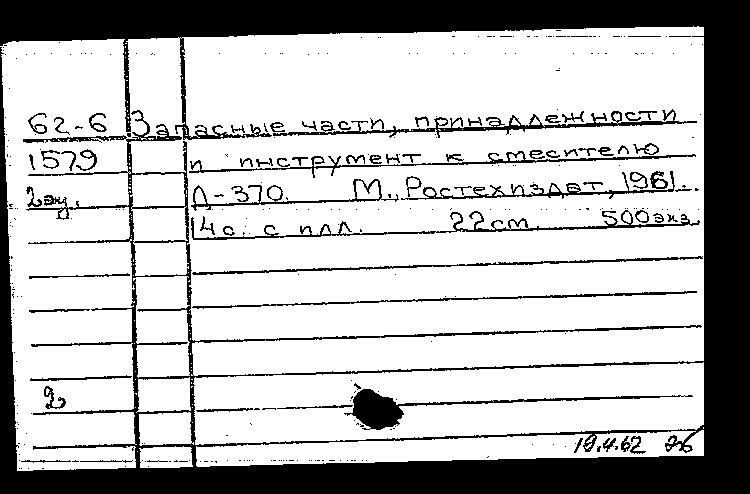 62-6 Запасные части, принадлежности
1579 и инструмент к смесителю
2 экз. Д-370. М., Ростехиздат, 1961.
14 с. с илл. 22 см. 500 экз.
19.4.62